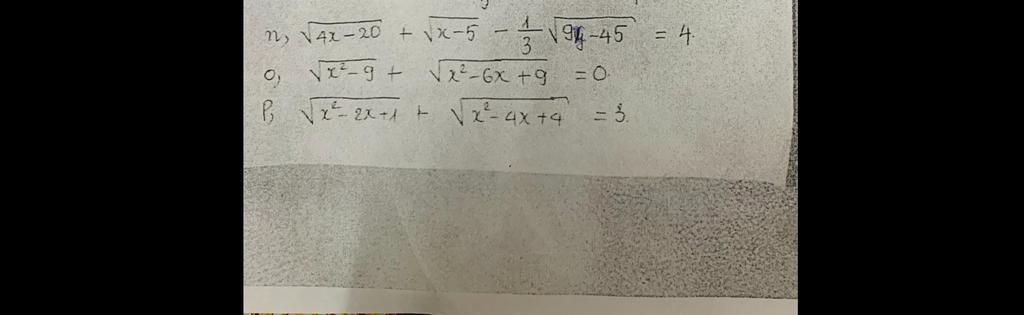 n, √4x-20 + √x-5 - 1/3 √9x-45 = 4.
o, √x²-9 + √x²-6x+9 = 0.
P, √x²-2x+1 + √x²-4x+4 = 3.